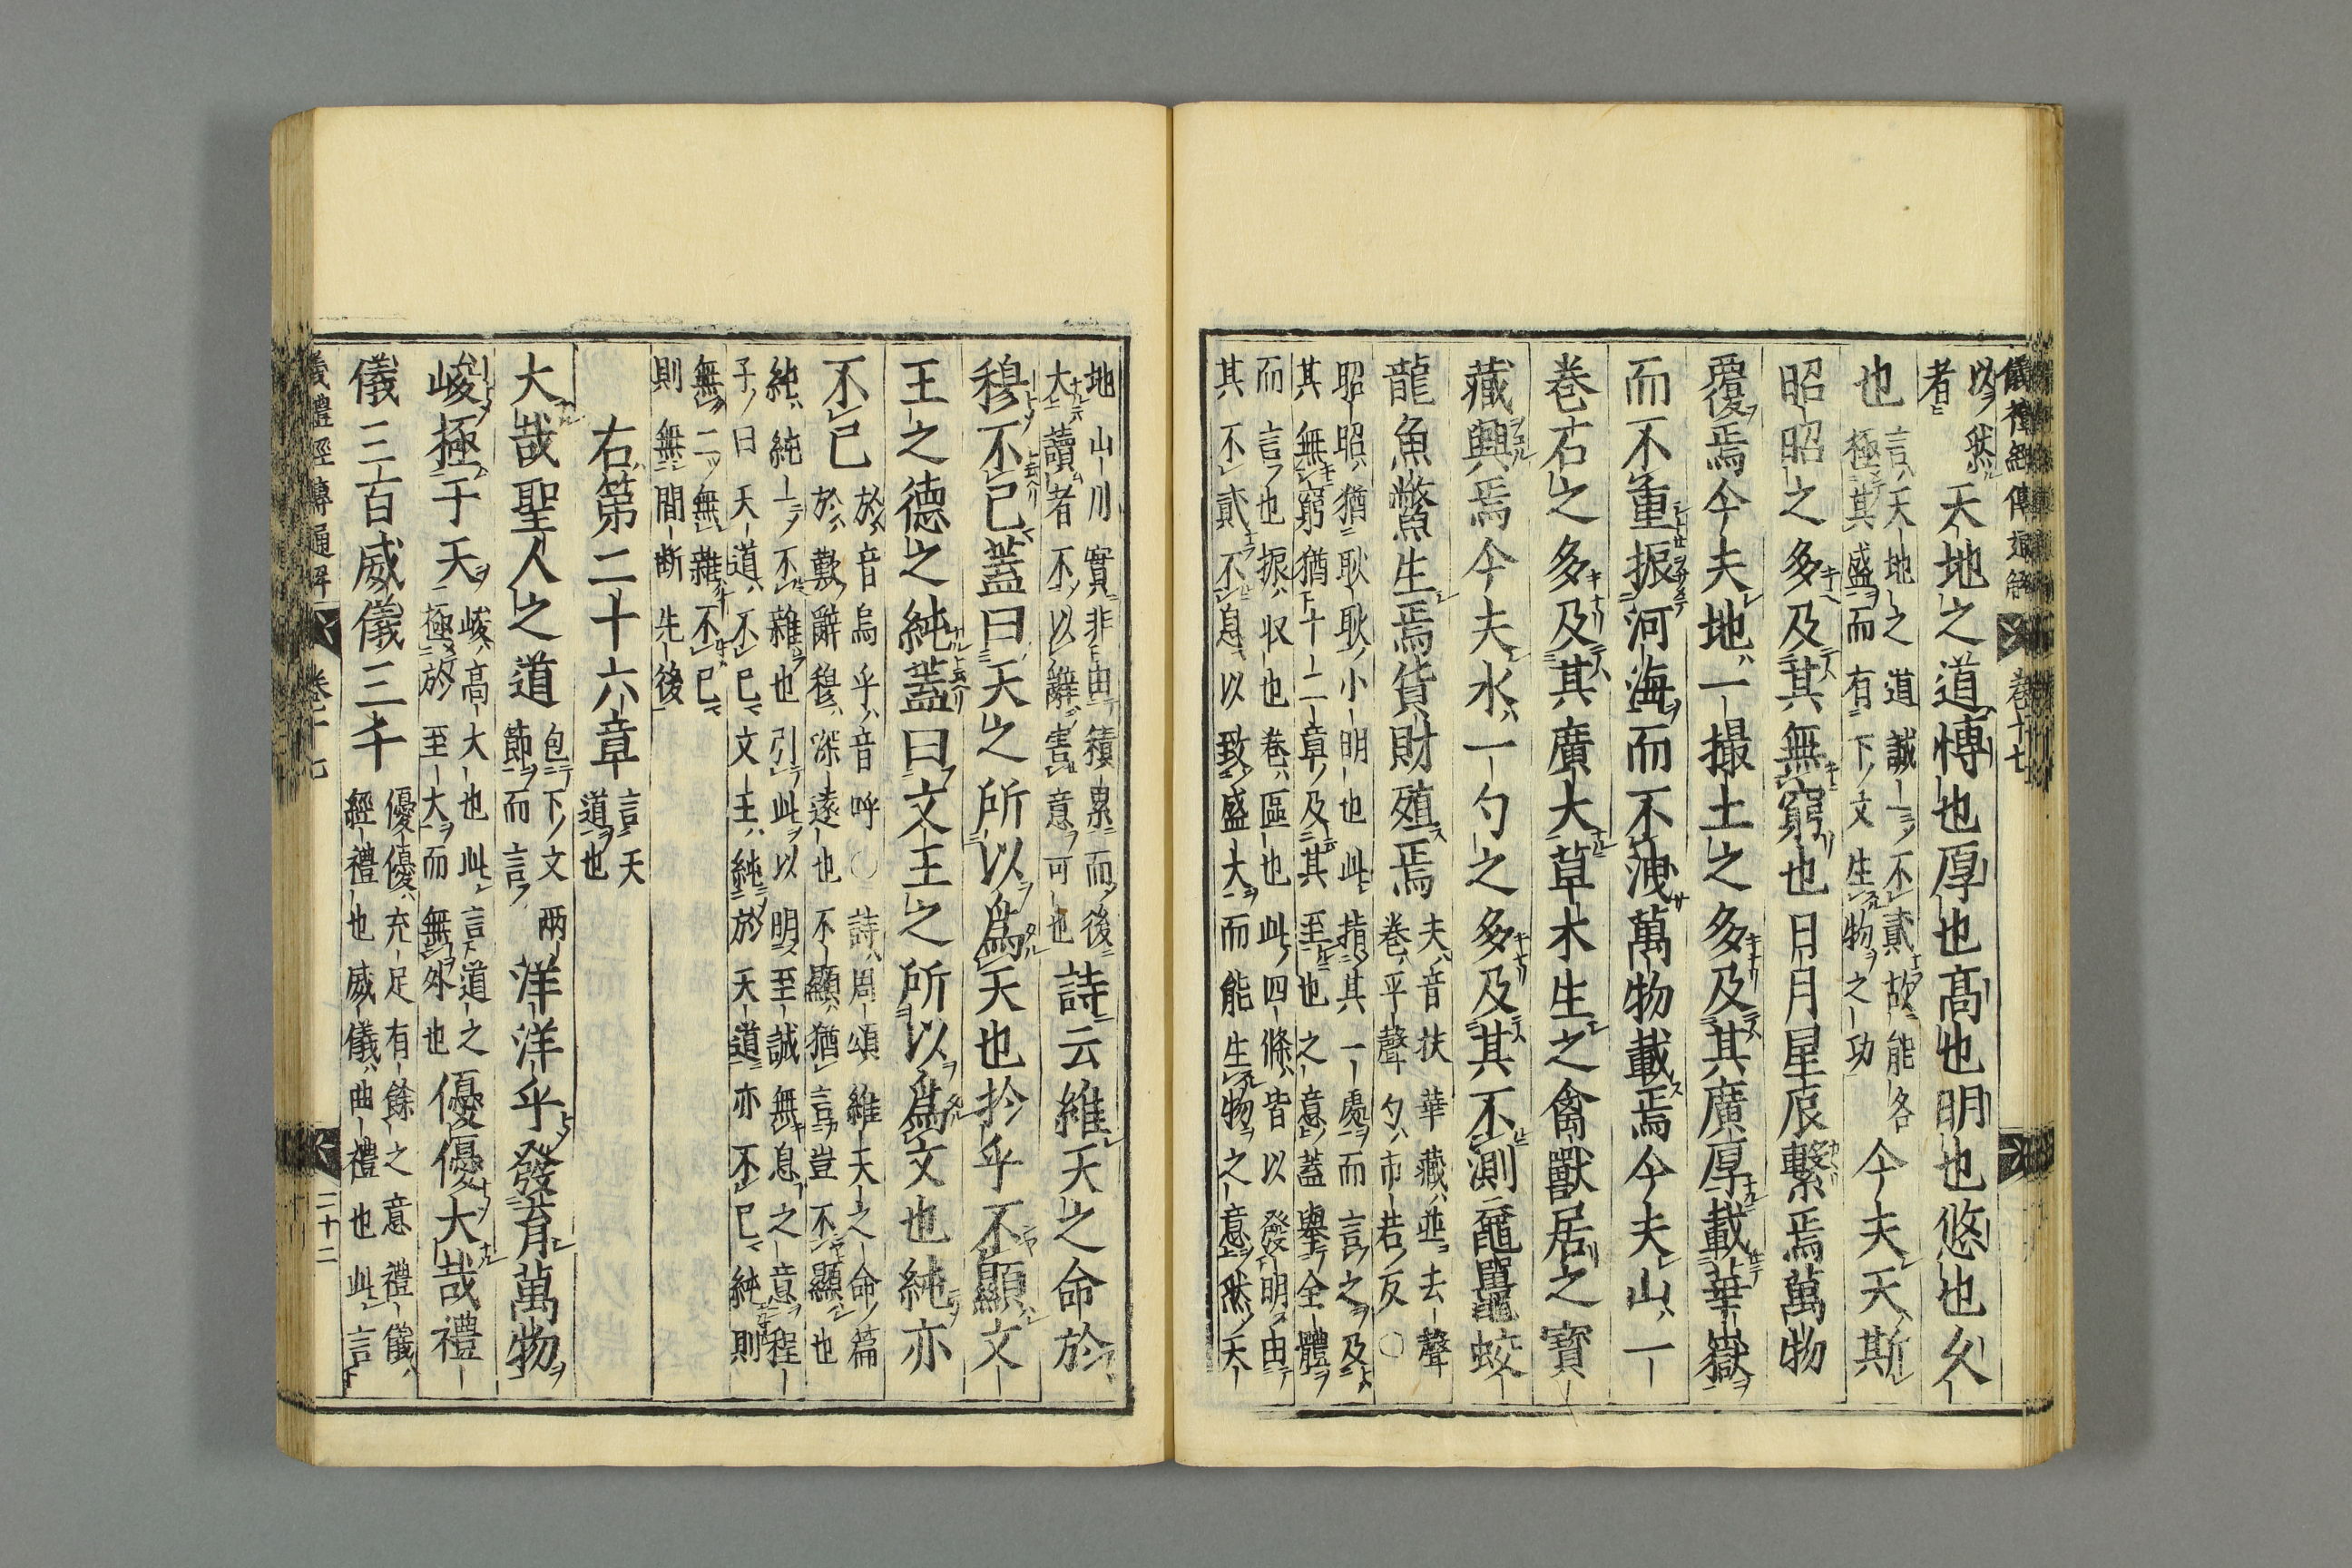 儀禮經傳通解 卷十七
以然
者
天地之道博也厚也高也明也悠也久
也
言天地之道誠一不貳故能各
極其盛而有下文生物之功
今夫天斯
昭昭之多及其無窮也日月星辰繫焉萬物
覆焉今夫地一撮土之多及其廣厚載華嶽
而不重振河海而不洩萬物載焉今夫山一
卷石之多及其廣大草木生之禽獸居之寶
藏興焉今夫水一勺之多及其不測黿鼉蛟
龍魚鱉生焉貨財殖焉
夫音扶華藏並去聲
卷平聲勺市若反○
昭昭猶耿耿小明也此指其一處而言之及
其無窮猶十二章及其至也之意蓋舉全體
而言也振収也卷區也此四條皆以發明由
其不貳不息以致盛大而能生物之意然天
地山川實非由積累而後
大讀者不以辭害意可也
詩云維天之命於
穆不已蓋曰天之所以爲天也於乎不顯文
王之德之純蓋曰文王之所以爲文也純亦
不已
於音烏乎音呼○詩周頌維天之命篇
於歎辭穆深遠也不顯猶言豈不顯也
純純一不雜也引此以明至誠無息之意程
子曰天道不已文王純於天道亦不已純則
無二無雜不已
則無間断先後
右第二十六章
言天
道也
大哉聖人之道
包下文兩
節而言
洋洋乎發育萬物
峻極于天
峻高大也此言道之
極於至大而無外也
優優大哉禮
儀三百威儀三千
優優充足有餘之意禮儀
經禮也威儀曲禮也此言
儀禮經傳通解 卷十七 二十二